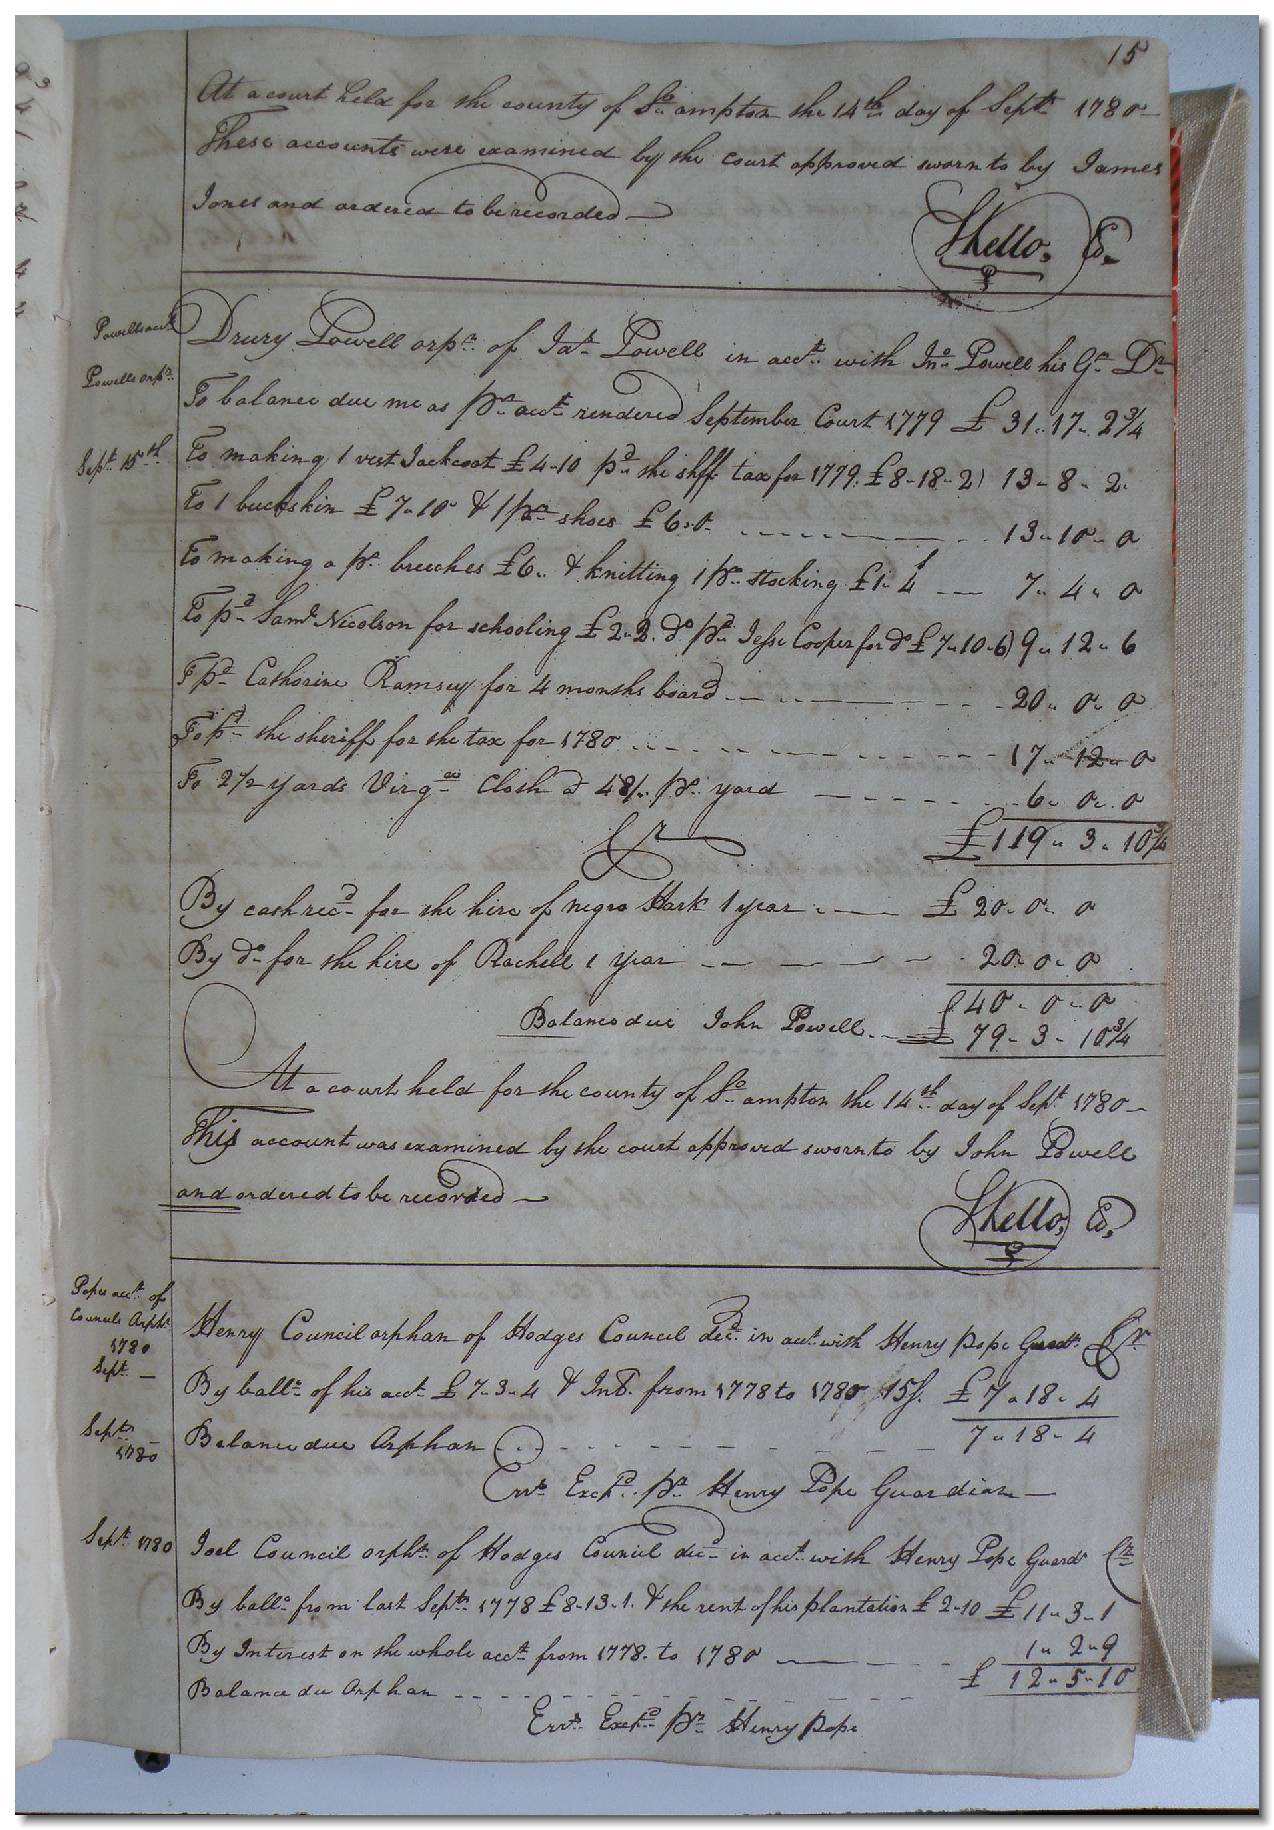 15
At a court held for the county of So. ampton the 14th day of Sept. 1780
These accounts were examined by the court approved sworn to by James
Jones and ordered to be recorded
Powells acct.
Drury Powell orpn. of Jas. Powell in acct. with Jno. Powell his Gn. Dr.
Powells orpn.
To balance due me as pr. acct. rendered September Court 1779 £ 31.. 17.. 2 3/4
Sept. 15th.
To making 1 vest Jackcoat £4-10 pd. the shff tax for 1779. £8-18-2) 13.. 8.. 2.
To 1 buckskin £7..10 & 1 pr. shoes £6..0.. 13.. 10.. 0
To making a pr. breeches £6.. & knitting 1 pr. stocking £1.. 4 7.. 4.. 0
To pd. Saml. Nicolson for schooling £2..2. do. pd. Jesse Cooper for do £7..10..6) 9.. 12.. 6
T pd. Cathorine Ramsey for 4 months board 20.. 0.. 0
To pd. the sheriff for the tax for 1780 17.. 12.. 0
To 2 1/2 yards Virga. Cloth @ 48/. pr. yard 6.. 0.. 0
£119.. 3.. 10 3/4
Cr
By cash recd. for the hire of negro Hark 1 year £ 20.. 0.. 0
By do. for the hire of Rachell 1 year 20.. 0.. 0
£40.. 0.. 0
Balance due John Powell £ 79.. 3.. 10 3/4
At a court held for the county of So. ampton the 14th. day of Sept. 1780
This account was examined by the court approved sworn to by John Powell
and ordered to be recorded
Popes acct. of
Councils Orpht.
1780
Sept.
Henry Council orphan of Hodges Council decd. in acct. with Henry Pope Guardn. Cr.
By balla. of his acct. £ 7..3..4 & Int. from 1778 to 1780 15/. £ 7.. 18.. 4
7.. 18.. 4
Septr.
1780
Balance due Orphan
Errs. Excpd. pr. Henry Pope Guardian
Sept. 1780
Joel Council orpht. of Hodges Council decd. in acct. with Henry Pope Guardn. Cr.
By balla. from last Septr. 1778 £8..13..1. & the rent of his plantation £ 2..10 £ 11.. 3.. 1
By Interest on the whole acct. from 1778. to 1780 1.. 2.. 9
Balance due Orphan £ 12.. 5.. 10
Errs. Excpd. pr. Henry Pope